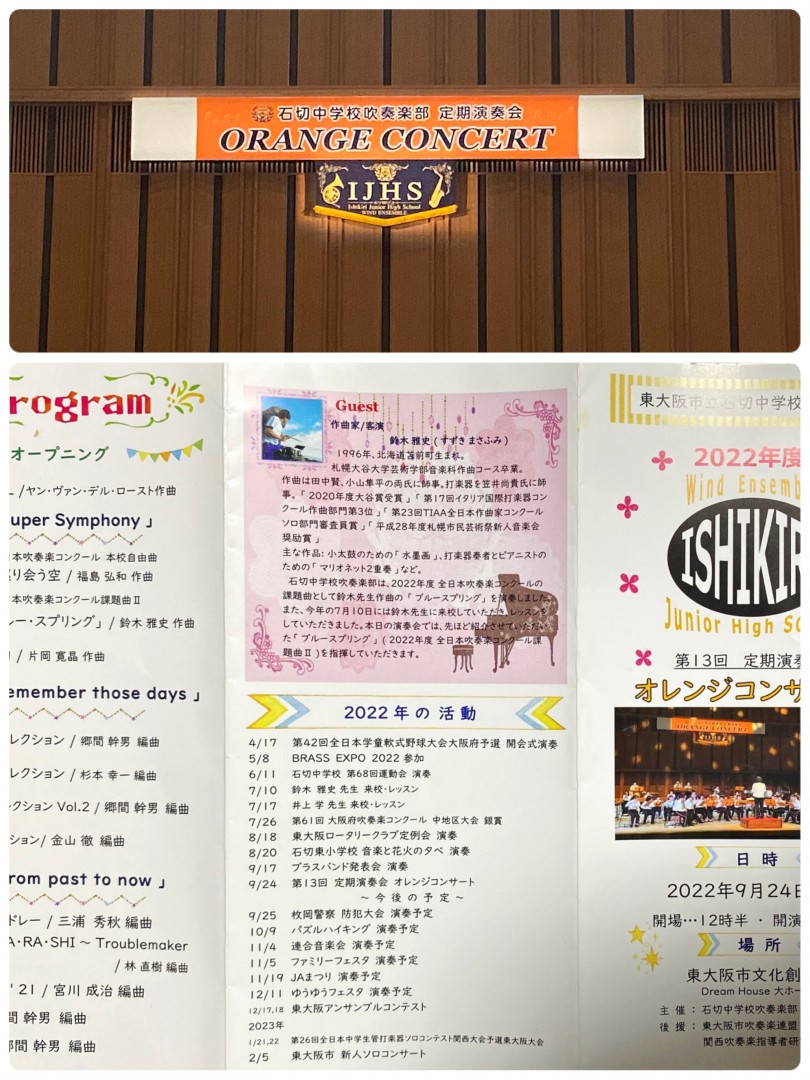 石切中学校吹奏楽部 定期演奏会
ORANGE CONCERT
IJHS
Ishikiri Junior High School
WIND ENSEMBLE
rogram
オープニング
/ヤン・ヴァン・デル・ロースト作曲
uper Symphony 」
本吹奏楽コンクール 本校自由曲
り会う空 / 福島 弘和 作曲
本吹奏楽コンクール課題曲Ⅱ
ルー・スプリング」 / 鈴木 雅史 作曲
/ 片岡 寛晶 作曲
emember those days 」
レクション / 郷間 幹男 編曲
レクション / 杉本 幸一 編曲
レクション Vol.2 / 郷間 幹男 編曲
ション/ 金山 徹 編曲
rom past to now 」
ドレー / 三浦 秀秋 編曲
A・RA・SHI ~ Troublemaker
/ 林 直樹 編曲
' 21 / 宮川 成治 編曲
間 幹男 編曲
間 幹男 編曲
Guest
作曲家/客演
鈴木 雅史 ( すずき まさふみ )
1996年、北海道苫前町生まれ。
札幌大谷大学芸術学部音楽科作曲コース卒業。
作曲は田中賢、小山隼平の両氏に師事。打楽器を笠井尚貴氏に師
事。「 2020年度大谷賞受賞 」「 第17回イタリア国際打楽器コン
クール作曲部門第3位 」「 第23回TIAA全日本作曲家コンクール
ソロ部門審査員賞 」「 平成28年度札幌市民芸術祭新人音楽会
奨励賞 」
主な作品: 小太鼓のための「 水墨画 」、打楽器奏者とピアニストの
ための「 マリオネット2重奏 」など。
石切中学校吹奏楽部は、2022年度 全日本吹奏楽コンクールの
課題曲として鈴木先生作曲の「 ブルースプリング」を演奏しました。
また、今年の7月10日には鈴木先生に来校していただき、レッスンを
していただきました。本日の演奏会では、先ほど紹介させていただい
た「 ブルースプリング 」( 2022年度 全日本吹奏楽コンクール課
題曲Ⅱ )を指揮していただきます。
2022年の活動
4/17 第42回全日本学童軟式野球大会大阪府予選 開会式演奏
5/8 BRASS EXPO 2022 参加
6/11 石切中学校 第68回運動会 演奏
7/10 鈴木 雅史 先生 来校・レッスン
7/17 井上 学 先生 来校・レッスン
7/26 第61回 大阪府吹奏楽コンクール 中地区大会 銀賞
8/18 東大阪ロータリークラブ定例会 演奏
8/20 石切東小学校 音楽と花火の夕べ 演奏
9/17 ブラスバンド発表会 演奏
9/24 第13回 定期演奏会 オレンジコンサート
~ 今後の予定 ~
9/25 枚岡警察 防犯大会 演奏予定
10/9 パズルハイキング 演奏予定
11/4 連合音楽会 演奏予定
11/5 ファミリーフェスタ 演奏予定
11/19 JAまつり 演奏予定
12/11 ゆうゆうフェスタ 演奏予定
12/17,18 東大阪アンサンブルコンテスト
2023年
1/21,22 第26回全日本中学生管打楽器ソロコンテスト関西大会予選東大阪大会
2/5 東大阪市 新人ソロコンサート
東大阪市立石切中学校
2022年度
Wind Ensemb
ISHIKIR
Junior High Sc
第13回 定期演奏
オレンジコンサ
ORANGE CONCERT
日時
2022年9月24日
開場…12時半 ・ 開演
場所
東大阪市文化創
Dream House 大ホー
主催 : 石切中学校吹奏楽部
後援 : 東大阪市吹奏楽連盟
関西吹奏楽指導者研